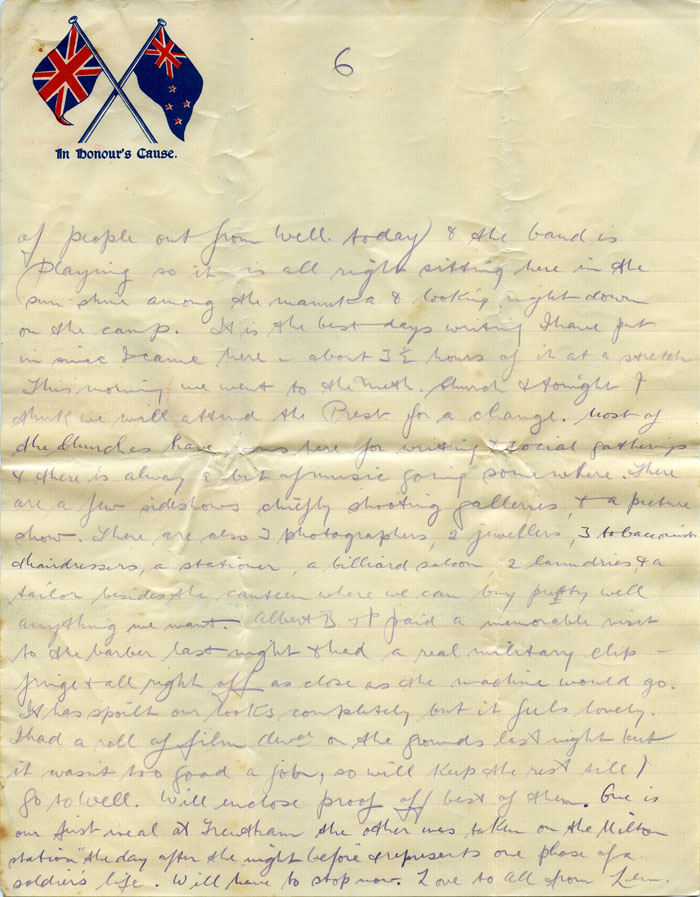 6
In Honour's Cause.
of people out from Well. today) & the band is
playing so it is all right sitting here in the
sun-shine among the manuka & looking right down
on the camp. It is the best days writing I have put
in since I came here - about 3½ hours of it at a stretch.
This morning we went to the Meth. Church & tonight I
think we will attend the Presb for a change. Most of
the Churches have rooms here for writing & social gatherings
& there is always a bit of music going somewhere. There
are a few sideshows chiefly shooting galleries, & a picture
show. There are also 3 photographers, 2 jewellers, 3 tobacconists
& hairdressers, a stationer, a billiard saloon 2 laundries & a
tailor besides the canteen where we can buy pretty well
anything we want. Albert B. & I paid a memorable visit
to the barber last night & had a real military clip -
fringe & all right off as close as the machine would go.
It has spoilt our looks completely but it feels lovely.
I had a roll of film devd on the grounds last night but
it wasn't too good a job, so will keep the rest till I
go to Well. Will enclose proof off best of them. One is
our first meal at Trentham the other was taken on the Milton
station "the day after the night before" & represents one phase of a
soldier's life. Will have to stop now. Love to all from Len.